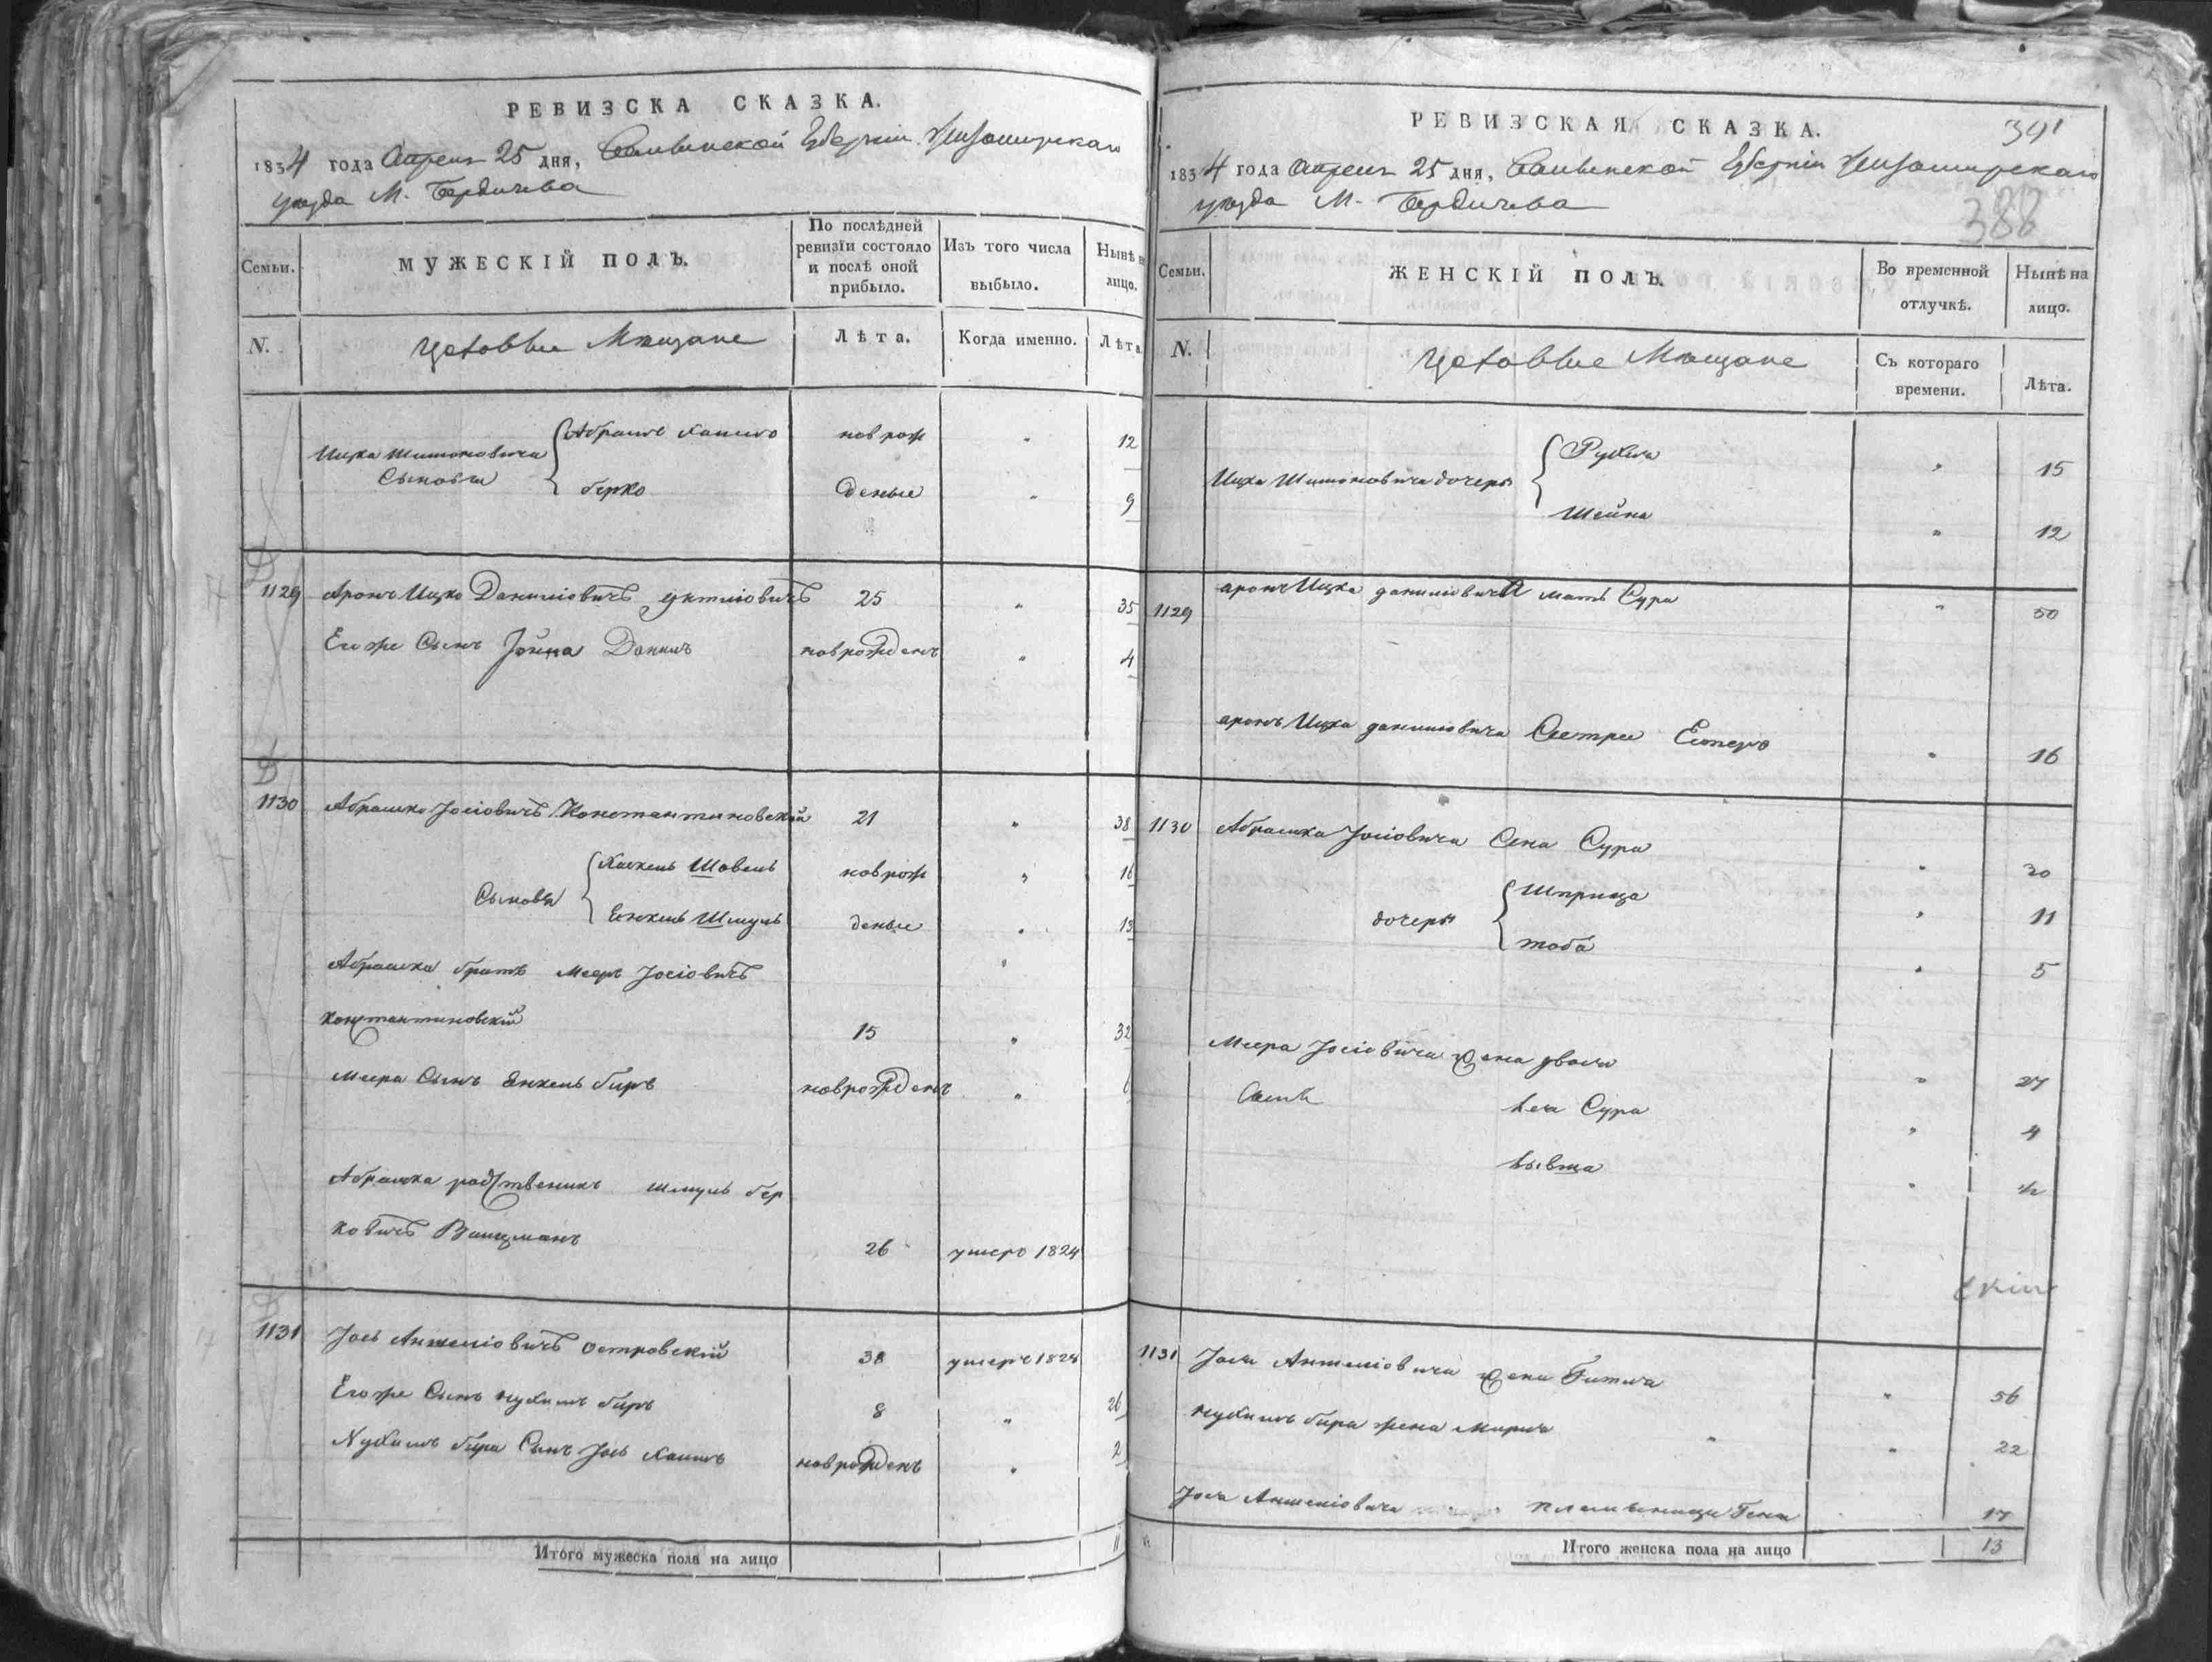 РЕВИЗСКА СКАЗКА.
1834 года Апреля 25 дня, Волынской Губернии Житомирскаго
уезда М. Бердичева
Семьи.
МУЖЕСКІЙ ПОЛЪ.
По послѣдней ревизіи состояло и послѣ оной прибыло.
Изъ того числа выбыло.
Нынѣ на лицо.
N.
Цеховые Мѣщане
Лѣта.
Когда именно.
Лѣта
Ицка Шимоновича Сыновья
Абрамъ Хаимъ новрож " 12
Берко деные " 9
1129 Аронъ Ицко Даниліовичъ 25 " 35
Его же Сынъ Іойна Данилъ новрожденъ " 4
1130 Абрашко Іосіовичъ Константиновскій 21 " 38
Сыновья
Хаскель Шовель новрож " 16
Енкель Шмуль деные " 13
Абрашка братъ Мееръ Іосіовичъ "
Константиновскій 15 " 32
Меера Сынъ Янкель Беръ новрожденъ "
Абрашка родственикъ Шмуль Бер
ковичъ Вайцманъ 26 умеръ 1824
1131 Іось Аншеліовичъ Островскій 38 умеръ 1824
Его же Сынъ Нухимъ Беръ 8 " 26
Нухимъ Бера Сынъ Іось Хаимъ новрожденъ " 2
Итого мужеска пола на лицо 11
РЕВИЗСКАЯ СКАЗКА.
391
1834 года Апреля 25 дня, Волынской Губерніи Житомирскаго
уезда М. Бердичева
388
Семьи.
ЖЕНСКІЙ ПОЛЪ.
Во временной отлучкѣ.
Нынѣ на лицо.
N.
Цеховые Мѣщане
Съ котораго времени.
Лѣта.
Ицка Шимоновича дочери
Рухля " 15
Шейна " 12
1129 Аронъ Ицка Даниліовича мать Сура " 50
Аронъ Ицка Даниліовича Сестра Естеръ " 16
1130 Абрашка Іосіовича Жена Сура " 30
дочери
Шприца " 11
Тоба " 5
Меера Іосіовича Жена Двося " 27
Лея Сура " 4
Ливша " ½
1131 Іося Аншеліовича Жена Гитля " 56
Нухимъ Бера жена Мирля " 22
Іося Аншеліовича племѣница Геня 17
Итого женска пола на лицо 13